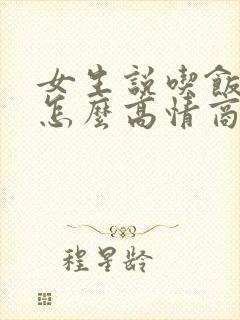 女生説喫飯
怎麼高情商
程星龄